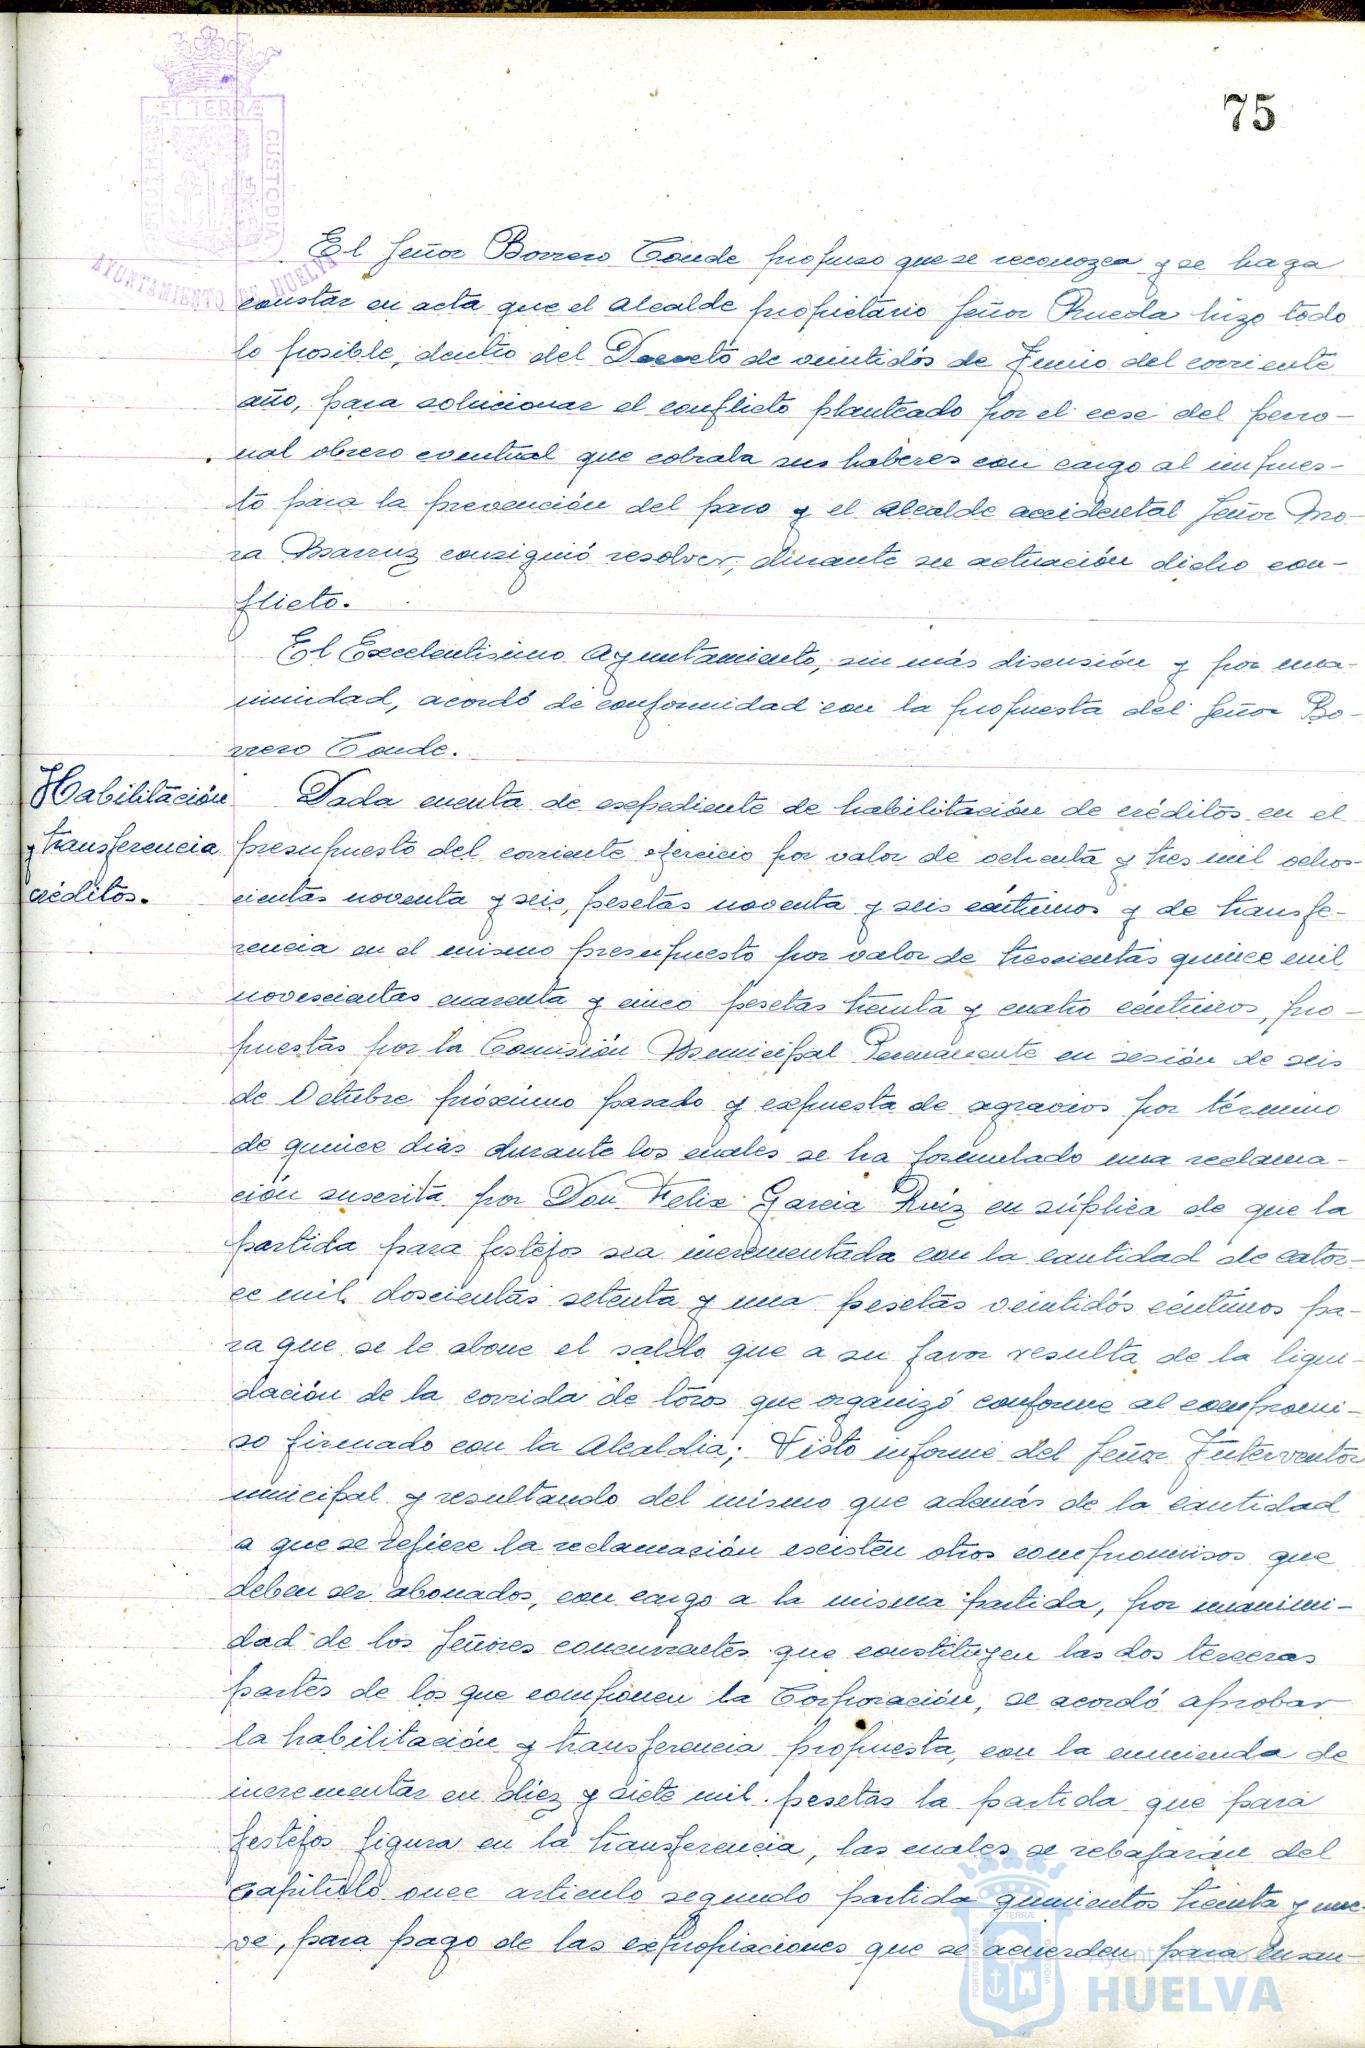 75
PORTUS MARIS
ET TERRÆ
CUSTODIA
AYUNTAMIENTO DE HUELVA
El Señor Borrero Conde propuso que se reconozca y se haga
constar en acta que el alcalde propietario Señor Rueda hizo todo
lo posible, dentro del Decreto de veintidós de Junio del corriente
año, para solucionar el conflicto planteado por el cese del perso-
nal obrero eventual que cobraba sus haberes con cargo al impues-
to para la prevención del paro y el alcalde accidental Señor Mo-
ra Marruz consiguió resolver, durante su actuación dicho con-
flicto.
El Excelentisimo Ayuntamiento, sin más discusión y por una-
nimidad, acordó de conformidad con la propuesta del Señor Bo-
rrero Conde.
Habilitación
y transferencia
créditos.
Dada cuenta de expediente de habilitación de créditos en el
presupuesto del corriente ejercicio por valor de ochenta y tres mil ochos-
cientas noventa y seis, pesetas noventa y seis céntimos y de transfe-
rencia en el mismo presupuesto por valor de trescientas quince mil
novescientas cuarenta y cinco pesetas treinta y cuatro céntimos, pro-
puestas por la Comisión Municipal Permanente en sesión de seis
de Octubre próximo pasado y expuesta de agravios por término
de quince dias durante los cuales se ha formulado una reclama-
ción suscrita por Don Felix Garcia Ruíz en súplica de que la
partida para festejos sea incrementada con la cantidad de cator-
ce mil doscientas setenta y una pesetas veintidós céntimos pa-
ra que se le abone el saldo que a su favor resulta de la liqui-
dación de la corrida de toros que organizó conforme al compromi-
so firmado con la Alcaldia; Visto informe del Señor Interventor
municipal y resultando del mismo que además de la cantidad
a que se refiere la reclamación existen otros compromisos que
deben ser abonados, con cargo a la misma partida, por unanimi-
dad de los Señores concurrentes que constituyen las dos terceras
partes de los que componen la Corporación, se acordó aprobar
la habilitación y transferencia propuesta, con la enmienda de
incrementar en diez y siete mil pesetas la partida que para
festejos figura en la transferencia, las cuales se rebajarán del
Capitulo once articulo segundo partida quinientos treinta y nue-
ve, para pago de las expropiaciones que se acuerden para ensan-
PORTUS MARIS
ET TERRÆ
CUSTODIA
Ayuntamiento
HUELVA